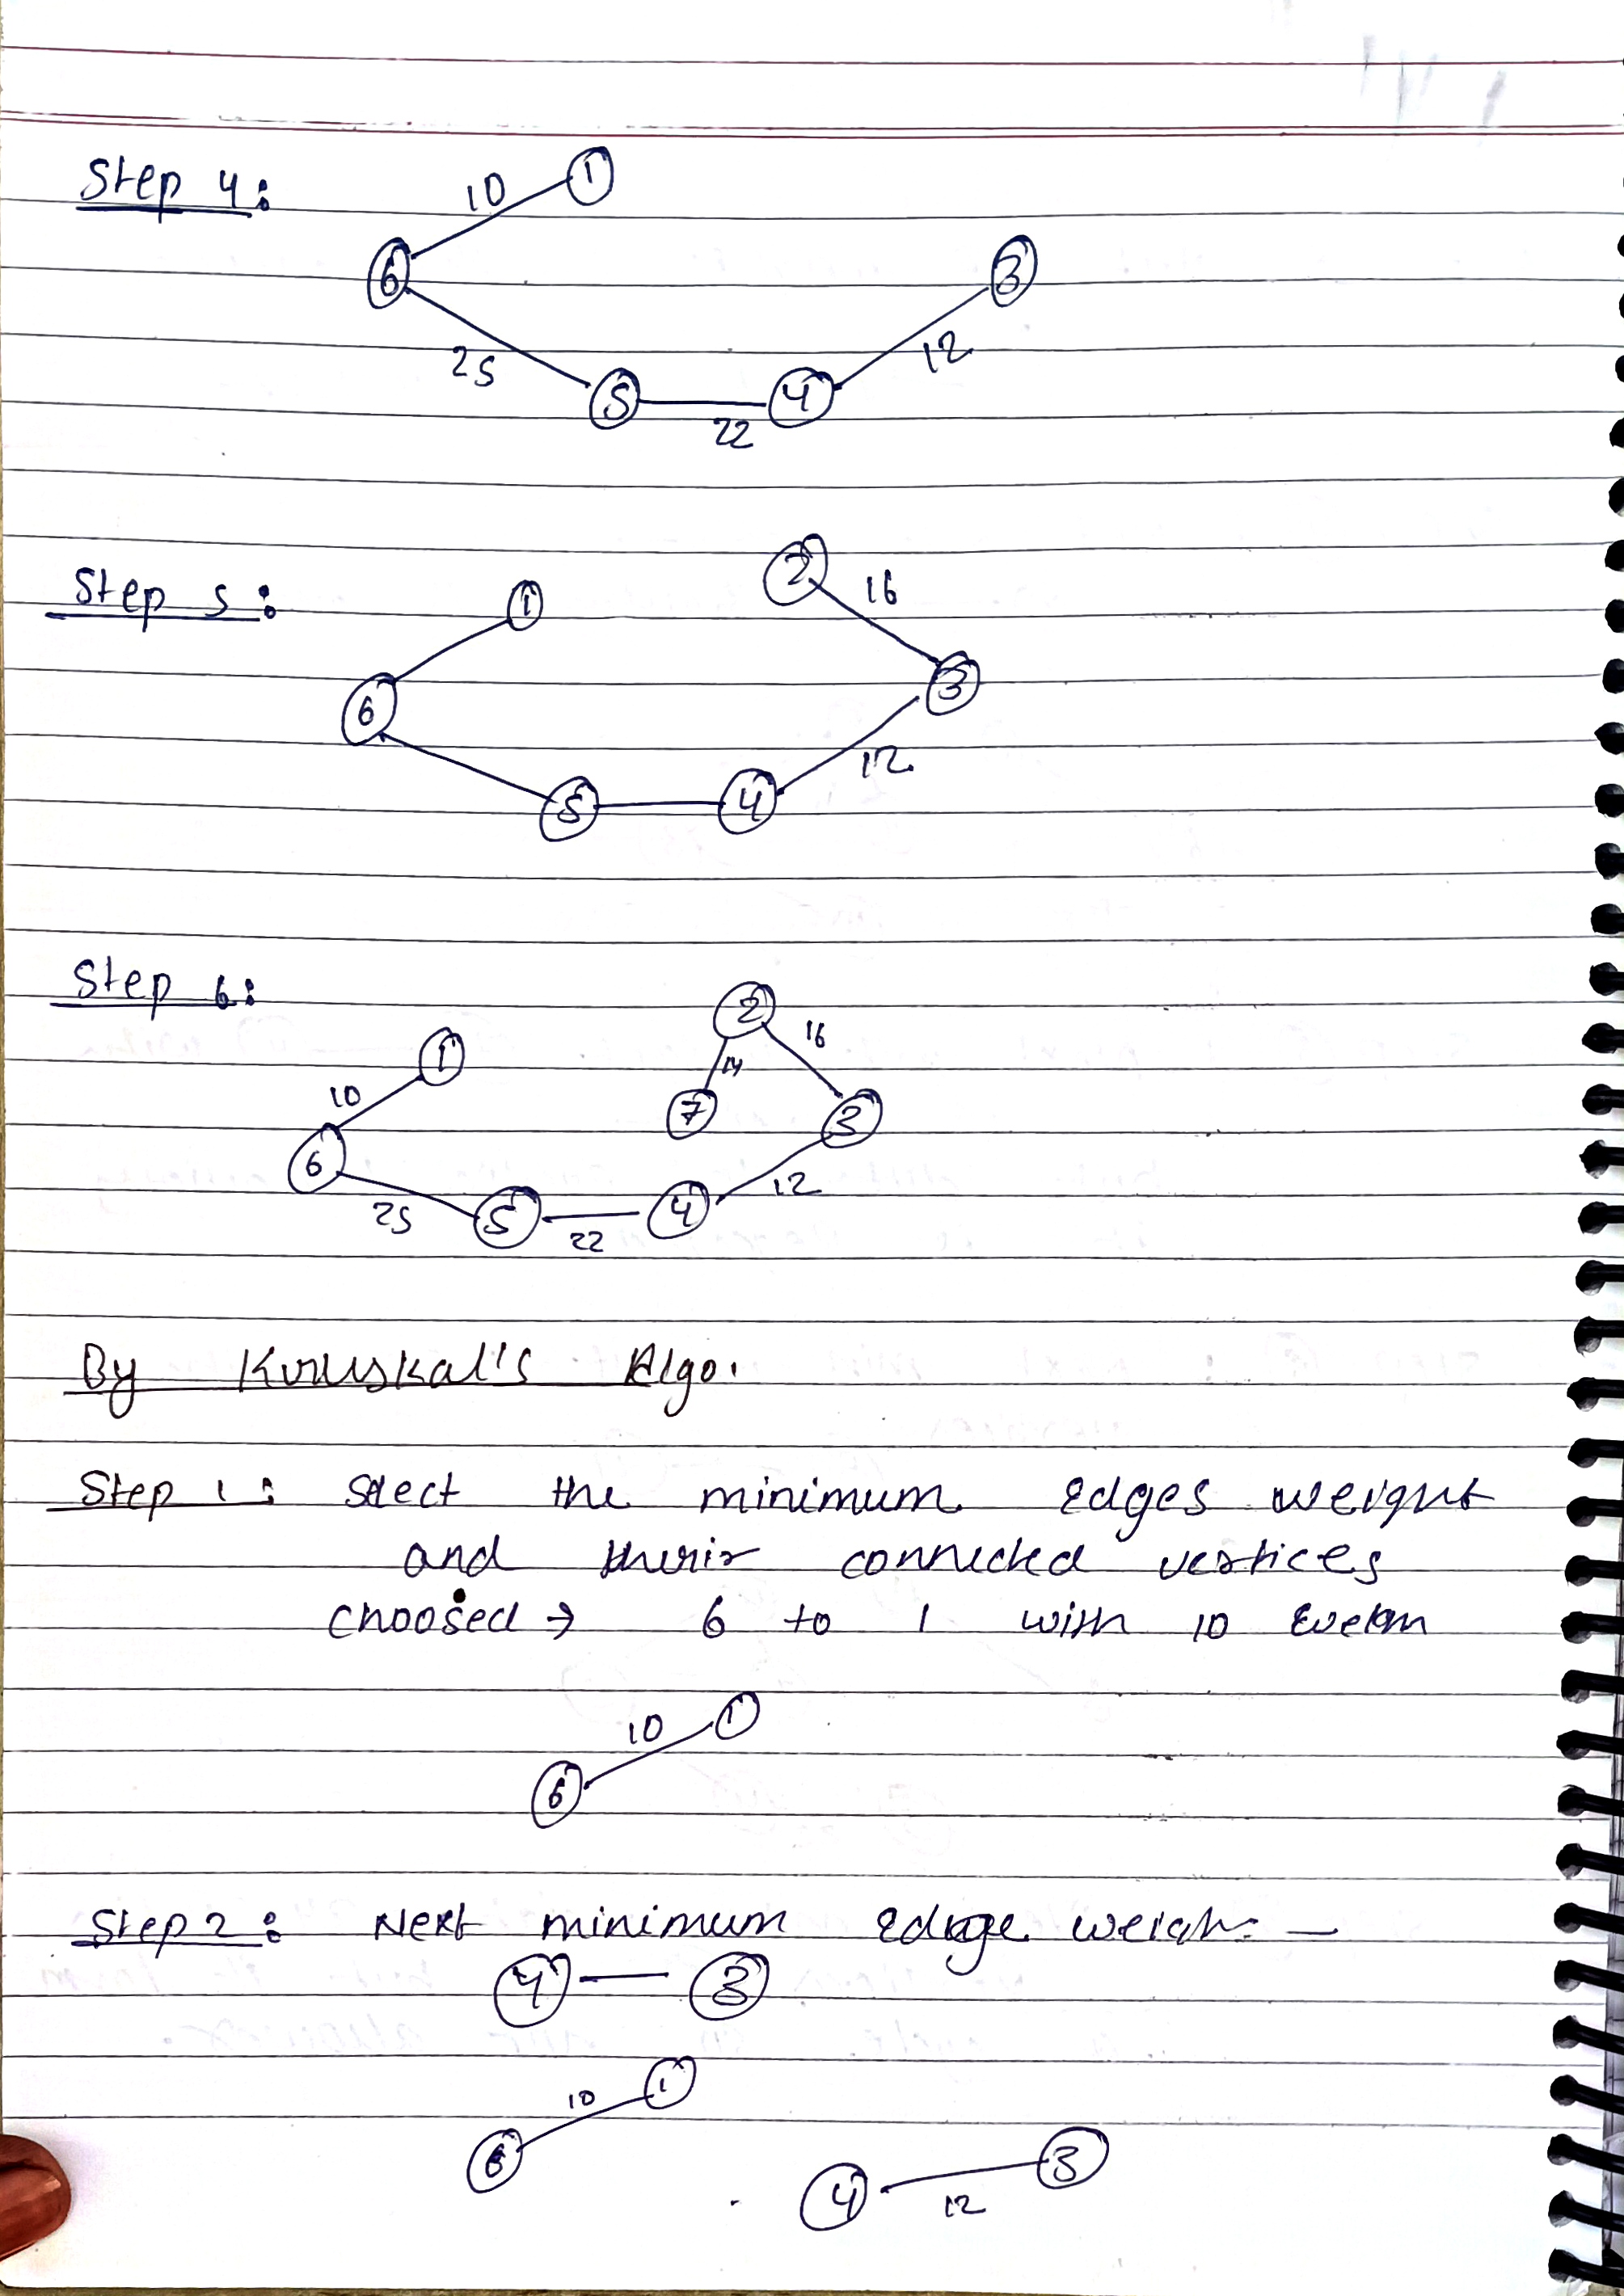 Step 4:
10 1
6 3
25 12
5 4
22
Step 5:
2 16
1
6 3
12
5 4
Step 6:
2
1 16
10 14
7 3
6
25 5 22 4 12
By Kruskal's Algo.
Step 1: Select the minimum edges weight
and their connected vertices
choosed → 6 to 1 with 10
10 1
6
Step 2: Next minimum edge weigh: —
4 — 3
10 1
6 3
4 12